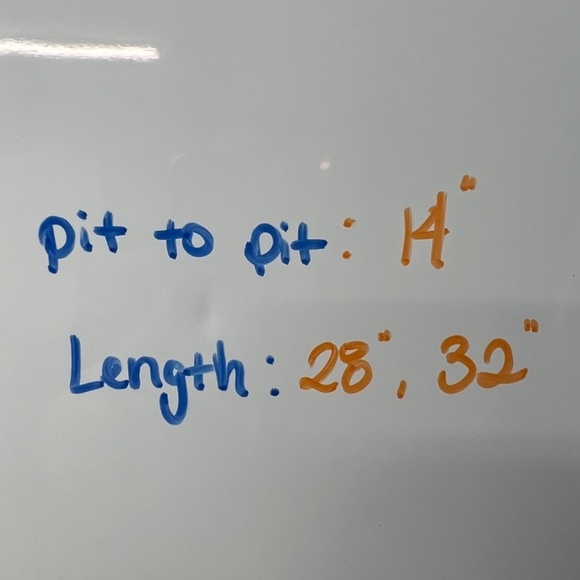 pit to pit: 14"
Length: 28", 32"